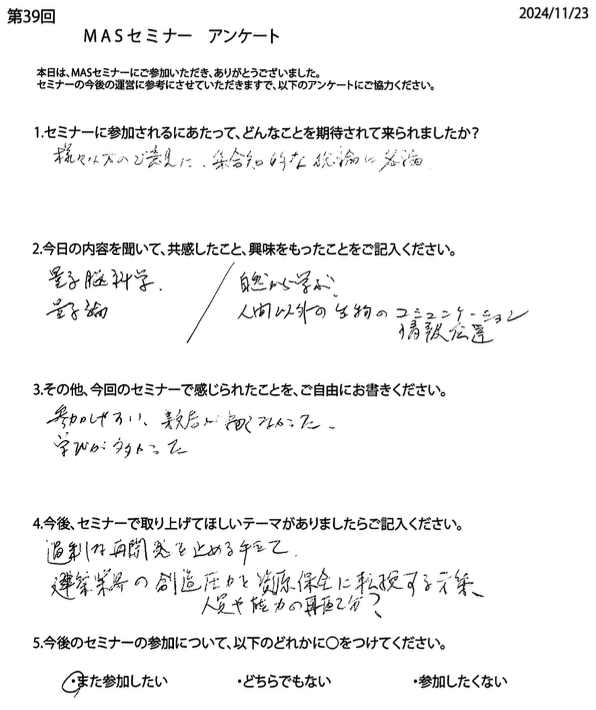 第39回
2024/11/23
MASセミナー アンケート
本日は、MASセミナーにご参加いただき、ありがとうございました。
セミナーの今後の運営に参考にさせていただきますで、以下のアンケートにご協力ください。
1.セミナーに参加されるにあたって、どんなことを期待されて来られましたか?
様々な方のご意見に、集合知的な
2.今日の内容を聞いて、共感したこと、興味をもったことをご記入ください。
量子脳科学.
量子論
自然から学ぶ
人間以外の生物のコミュニケーション
情報伝達
3.その他、今回のセミナーで感じられたことを、ご自由にお書きください。
参加しやすい、
学びが多かった
4.今後、セミナーで取り上げてほしいテーマがありましたらご記入ください。
過剰な再開発を止める手立て.
建築業界の創造圧力を資源保全に転換する方策、
人員や能力の再配分?
5.今後のセミナーの参加について、以下のどれかに〇をつけてください。
・また参加したい ・どちらでもない ・参加したくない